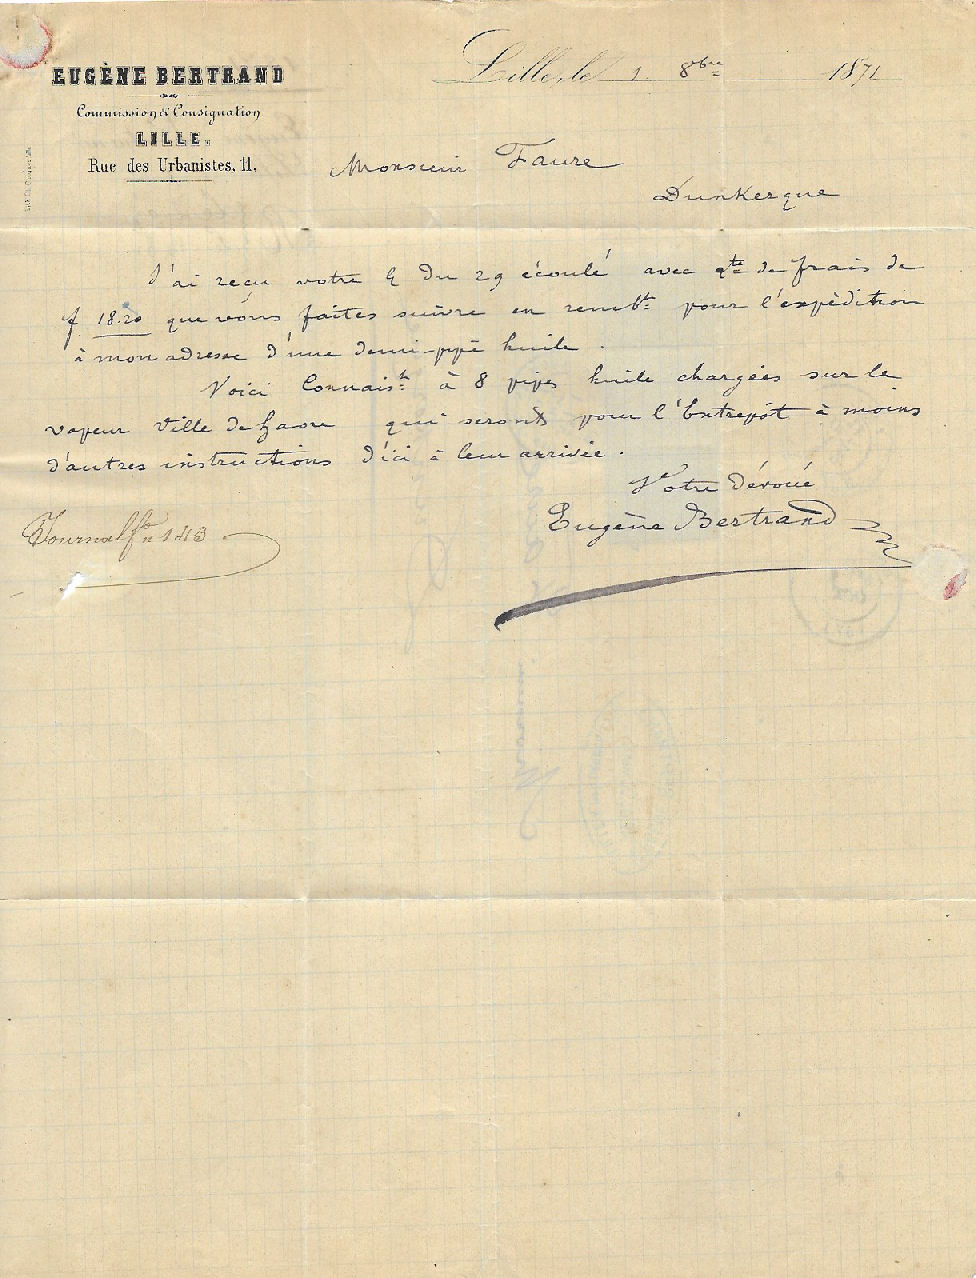 EUGÈNE BERTRAND
Commission & Consignation
LILLE.
Rue des Urbanistes, 11.
Lille, le 1. 8bre 1871
Monsieur Faure
Dunkerque
J'ai reçu votre du 29 écoulé avec de frais de
f 18.20 que vous faites suivre en rembt pour l'expédition
à mon adresse d'une demi-ppe huile.
Voici Connaist à 8 pipes huile chargées sur le
vapeur Ville de havre qui seront pour l'Entrepôt à moins
d'autres instructions d'ici à leur arrivée.
Votre Dévoué
Eugène Bertrand
Journal fo